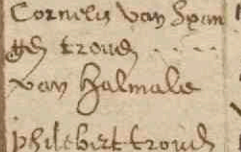 Cornelis van Span
gen troud . . . .
van Halmale
philibert troud